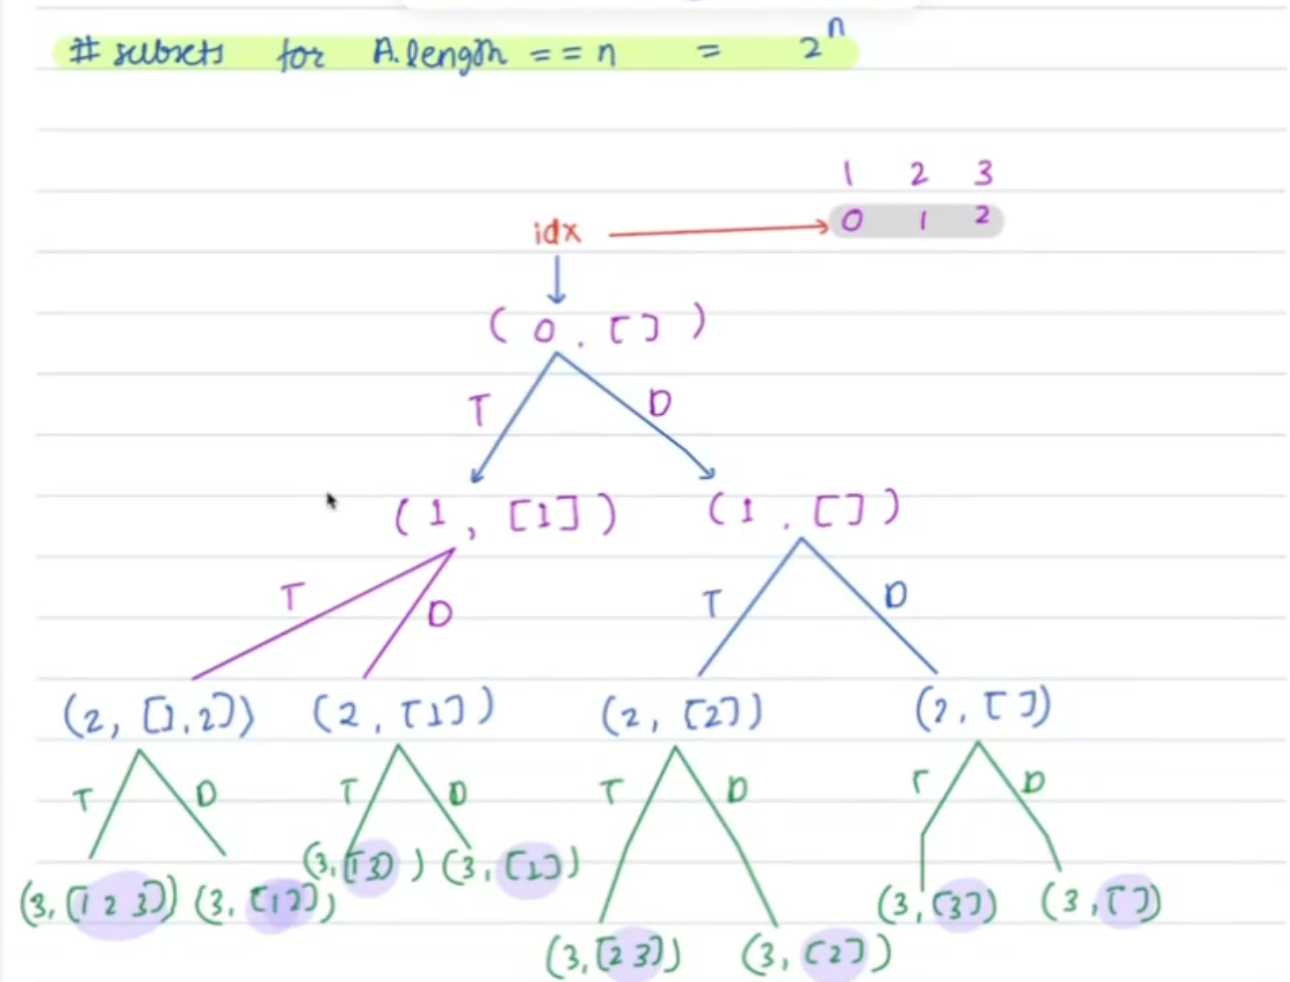 # subsets for A.length == n = 2^n
1 2 3
idx 0 1 2
( 0 . [] )
T D
( 1 , [1] ) ( 1 . [] )
T D T D
(2, [1,2]) (2, [1]) (2, [2]) (2, [])
T D T D T D T D
(3, [1 3] ) (3, [1])
(3, [1 2 3]) (3, [12]) (3, [3]) (3, [])
(3, [2 3]) (3, [2])